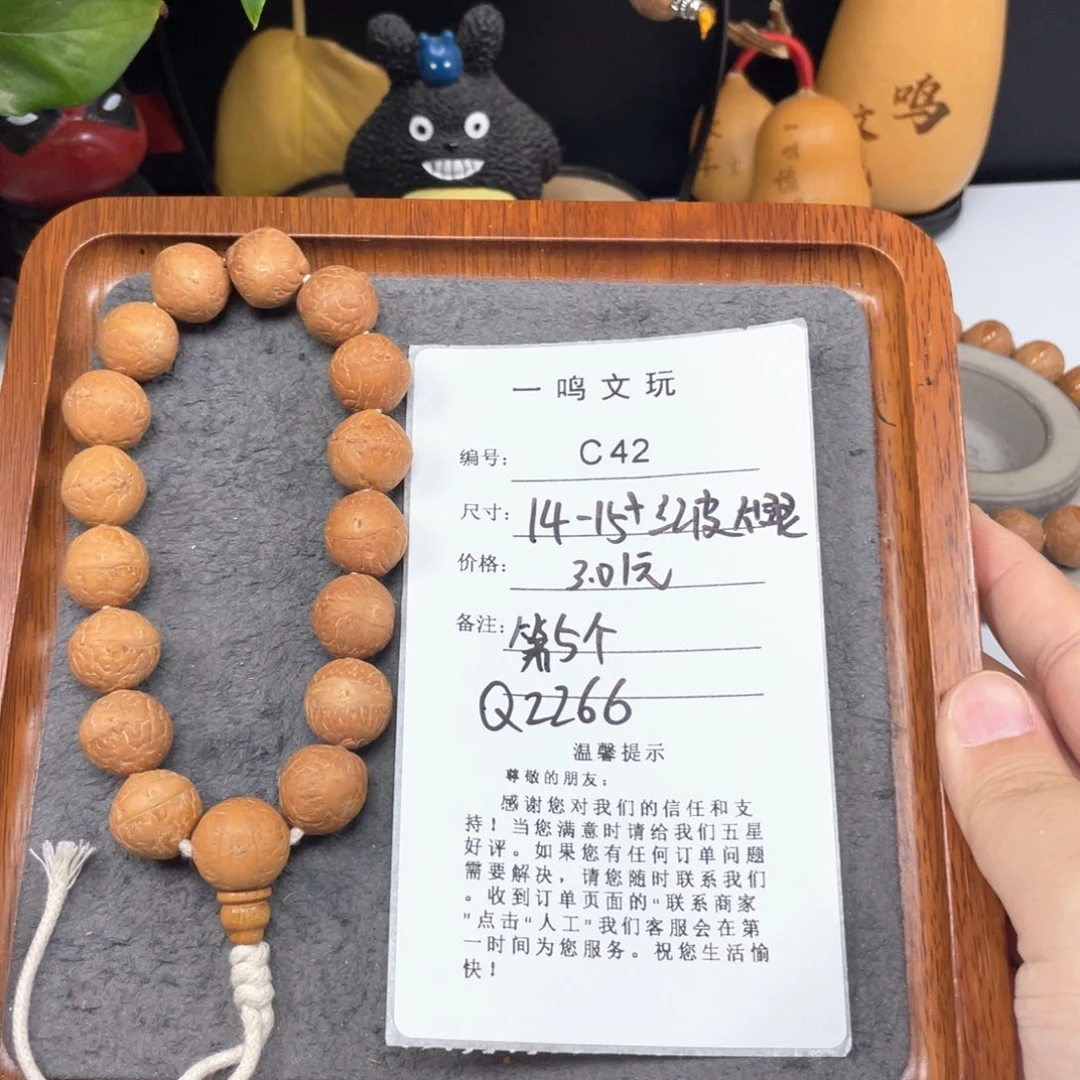 鸣
文
一鸣文玩
编号: C42
尺寸: 14-15+红皮大银
价格: 3.01元
备注: 第5个
Q2266
温馨提示
尊敬的朋友:
感谢您对我们的信任和支
持!当您满意时请给我们五星
好评。如果您有任何订单问题
需要解决,请您随时联系我们
。收到订单页面的“联系商家
”点击“人工”我们客服会在第
一时间为您服务。祝您生活愉
快!